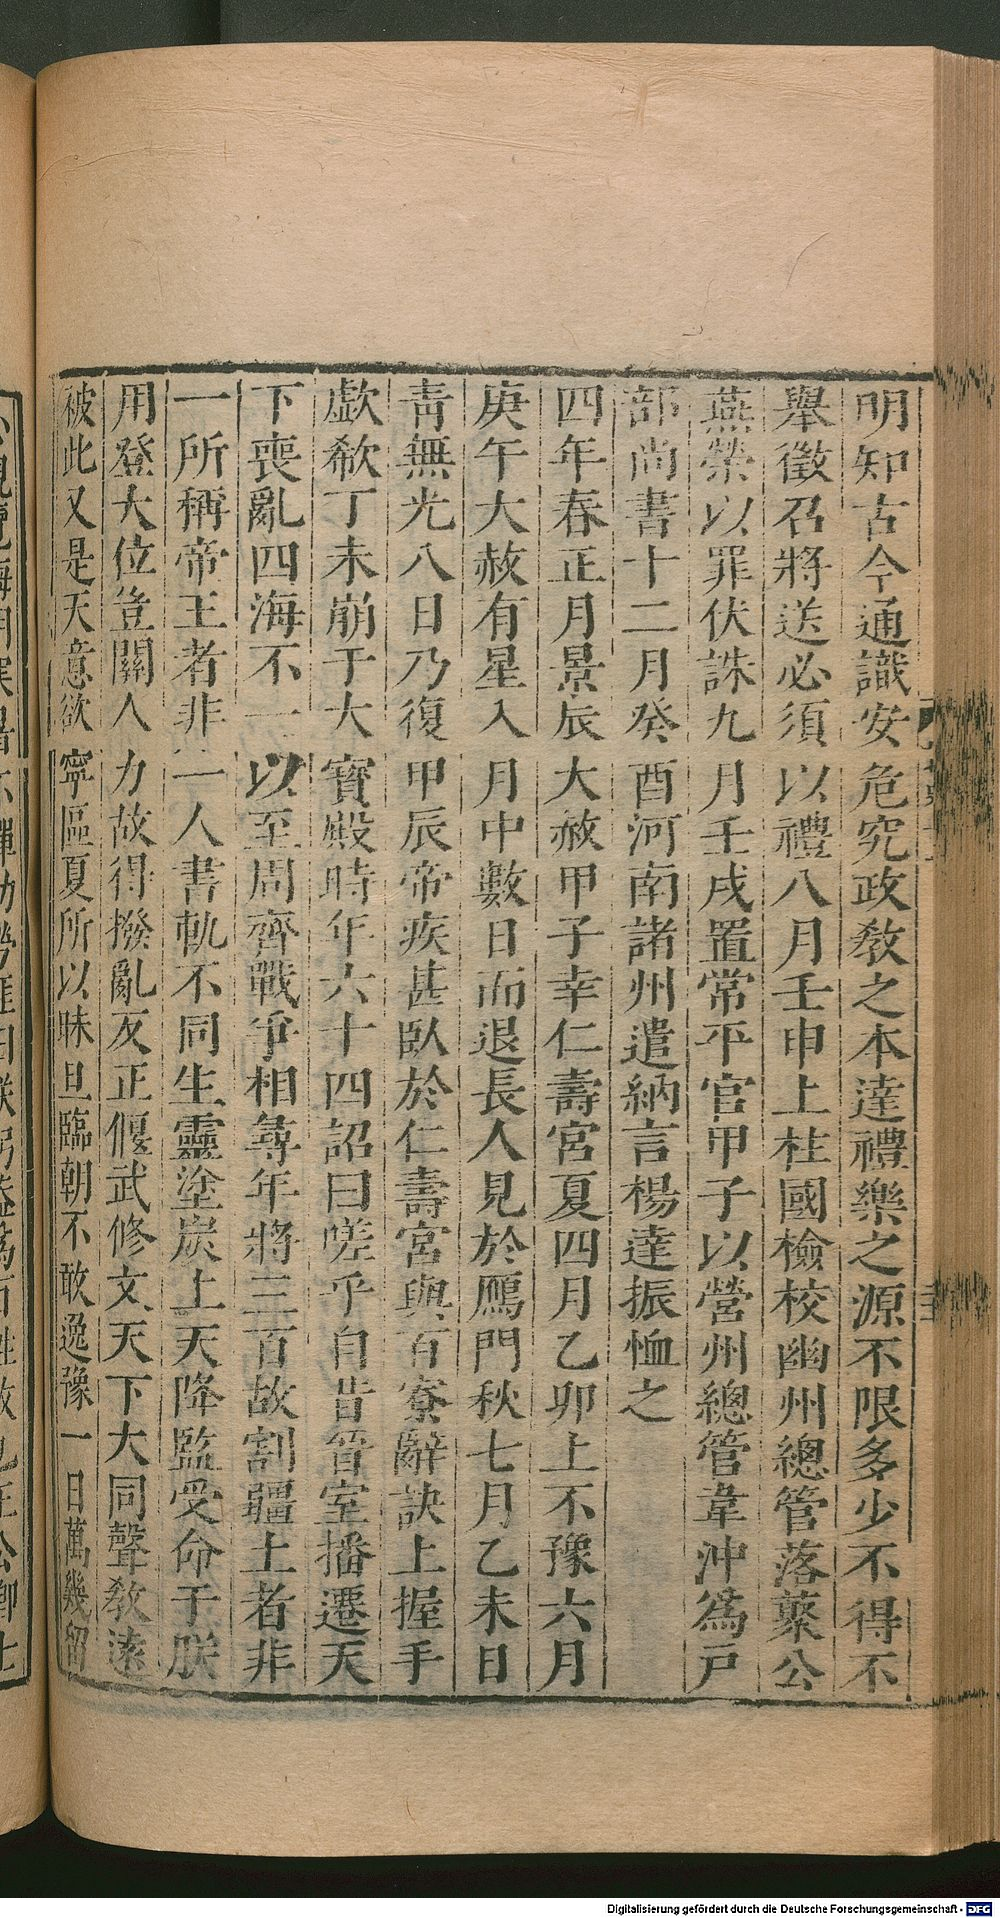 明知古今通識安危究政教之本達禮樂之源不限多少不得不
舉徵召將送必須以禮八月壬申上柱國檢校幽州總管落藂公
燕榮以罪伏誅九月壬戌置常平官甲子以營州總管韋沖爲戸
部尚書十二月癸酉河南諸州遣納言楊達振恤之
四年春正月景辰大赦甲子幸仁壽宮夏四月乙卯上不豫六月
庚午大赦有星入月中數日而退長人見於鴈門秋七月乙未日
靑無光八日乃復甲辰帝疾甚臥於仁壽宮與百寮辭訣上握手
歔欷丁未崩于大寶殿時年六十四詔曰嗟乎自昔晉室播遷天
下喪亂四海不一以至周齊戰爭相尋年將三百故割疆土者非
一所稱帝王者非一人書軌不同生靈塗炭上天降監受命于朕
用登大位豈關人力故得撥亂反正偃武修文天下大同聲教遠
被此又是天意欲寧區夏所以昧旦臨朝不敢逸豫一日萬幾留
Digitalisierung gefördert durch die Deutsche Forschungsgemeinschaft - DFG